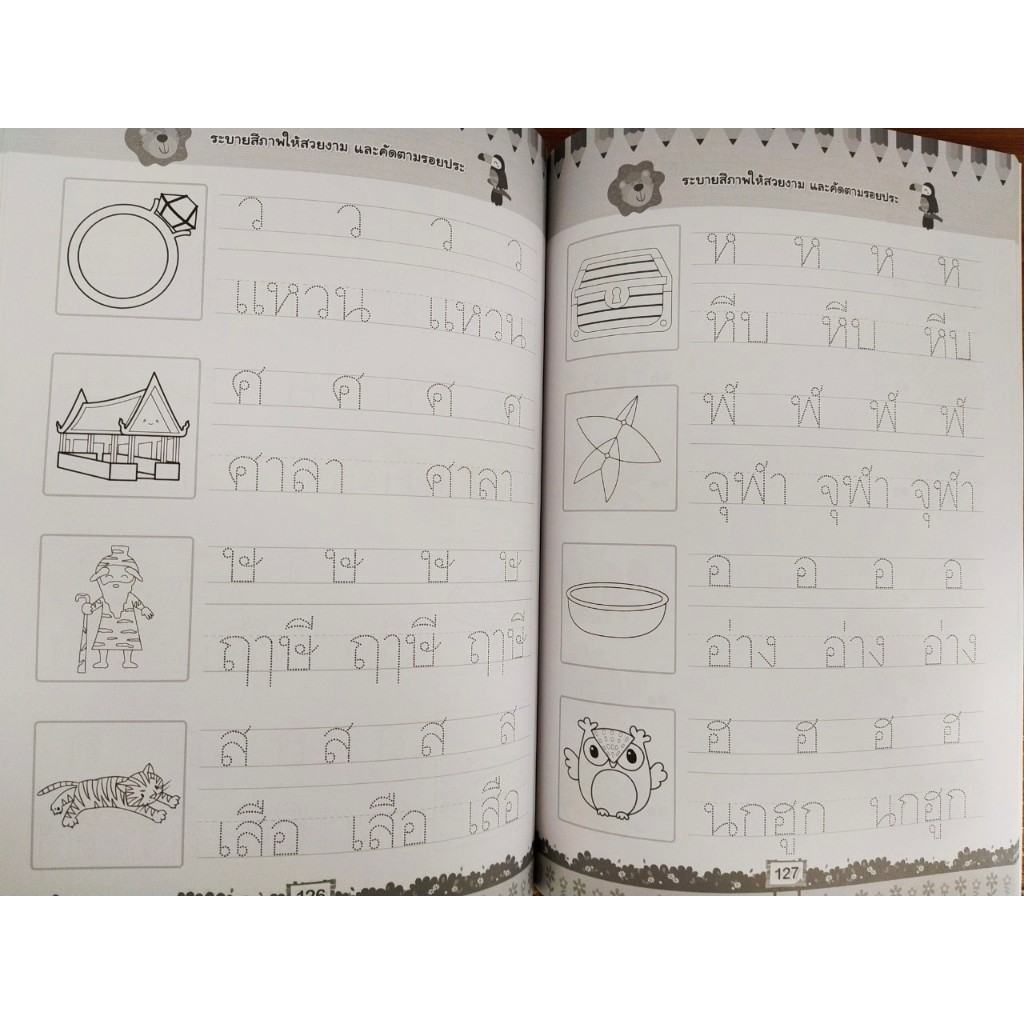 ระบายสีภาพให้สวยงาม และคัดตามรอยประ
ว ว ว ว
แหวน แหวน
ศ ศ ศ ศ
ศาลา ศาลา
ษ ษ ษ ษ
ฤๅษี ฤๅษี ฤๅษี
ส ส ส ส
เสือ เสือ เสือ
126
ระบายสีภาพให้สวยงาม และคัดตามรอยประ
ห ห ห ห
หีบ หีบ หีบ
ฬ ฬ ฬ ฬ
จุฬา จุฬา จุฬา
อ อ อ อ
อ่าง อ่าง อ่าง
ฮ ฮ ฮ ฮ
นกฮูก นกฮูก
127